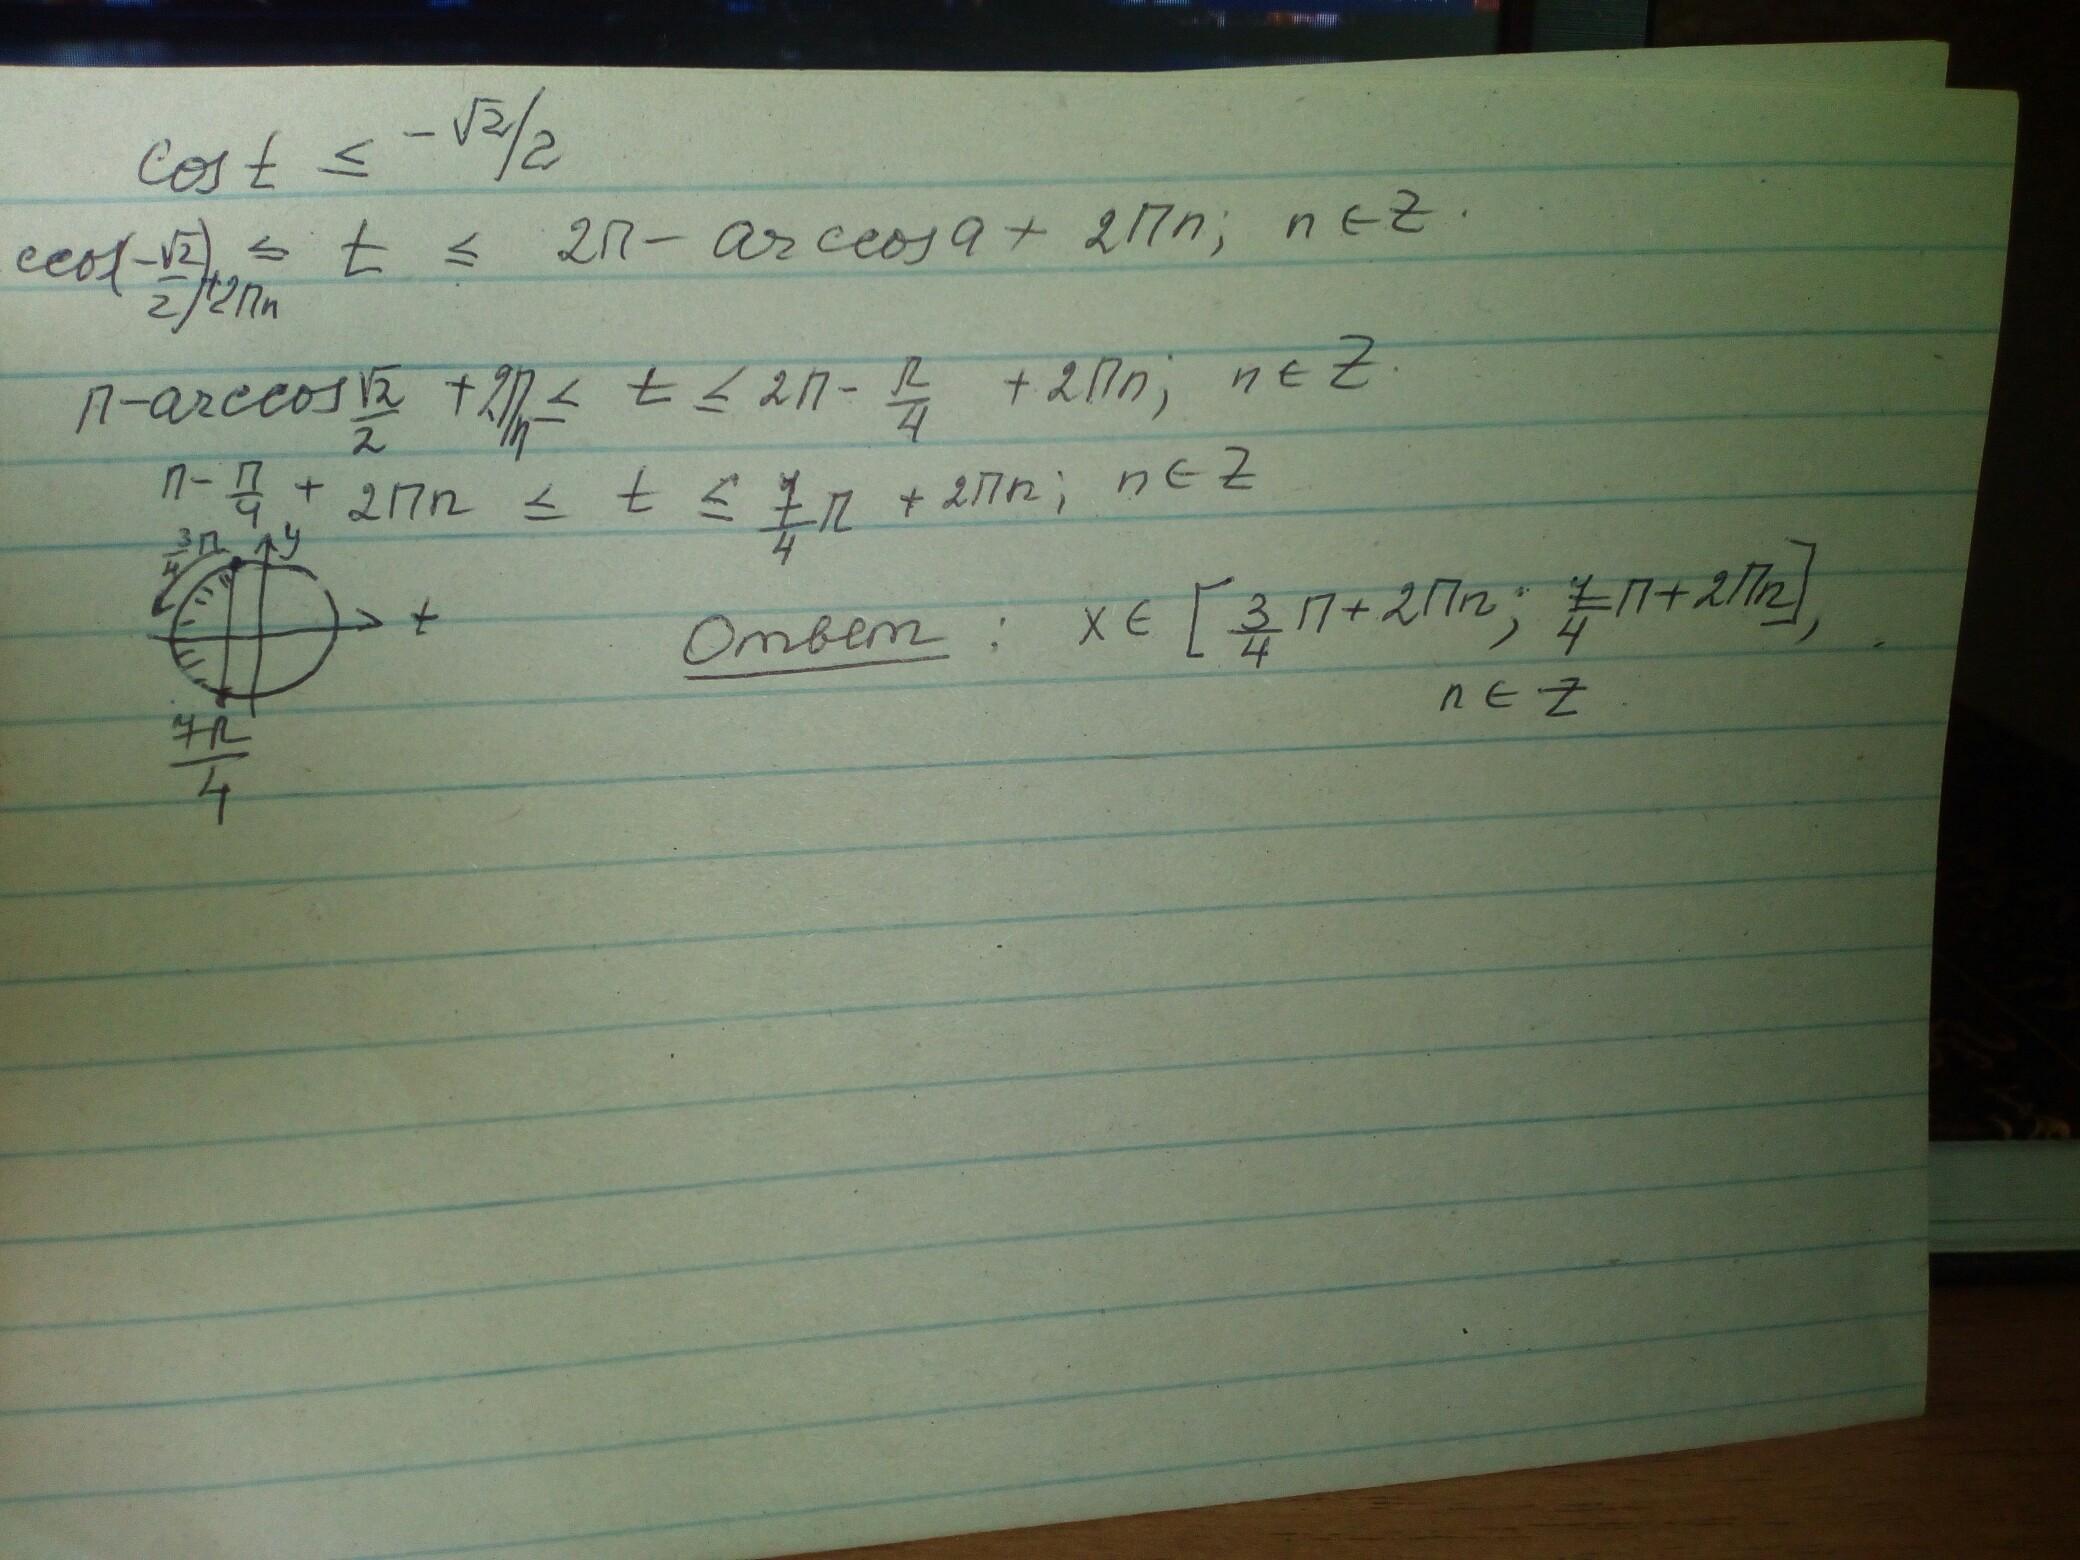 cos t ≤ -√2/2
ccos(-√2/2)+2πn ≤ t ≤ 2π - arccos a + 2πn; n ∈ Z.
π - arccos √2/2 + 2πn ≤ t ≤ 2π - π/4 + 2πn; n ∈ Z.
π - π/4 + 2πn ≤ t ≤ 7/4 π + 2πn; n ∈ Z
3/4 π
y
t
7π/4
Ответ: x ∈ [3/4 π + 2πn; 7/4 π + 2πn],
n ∈ Z